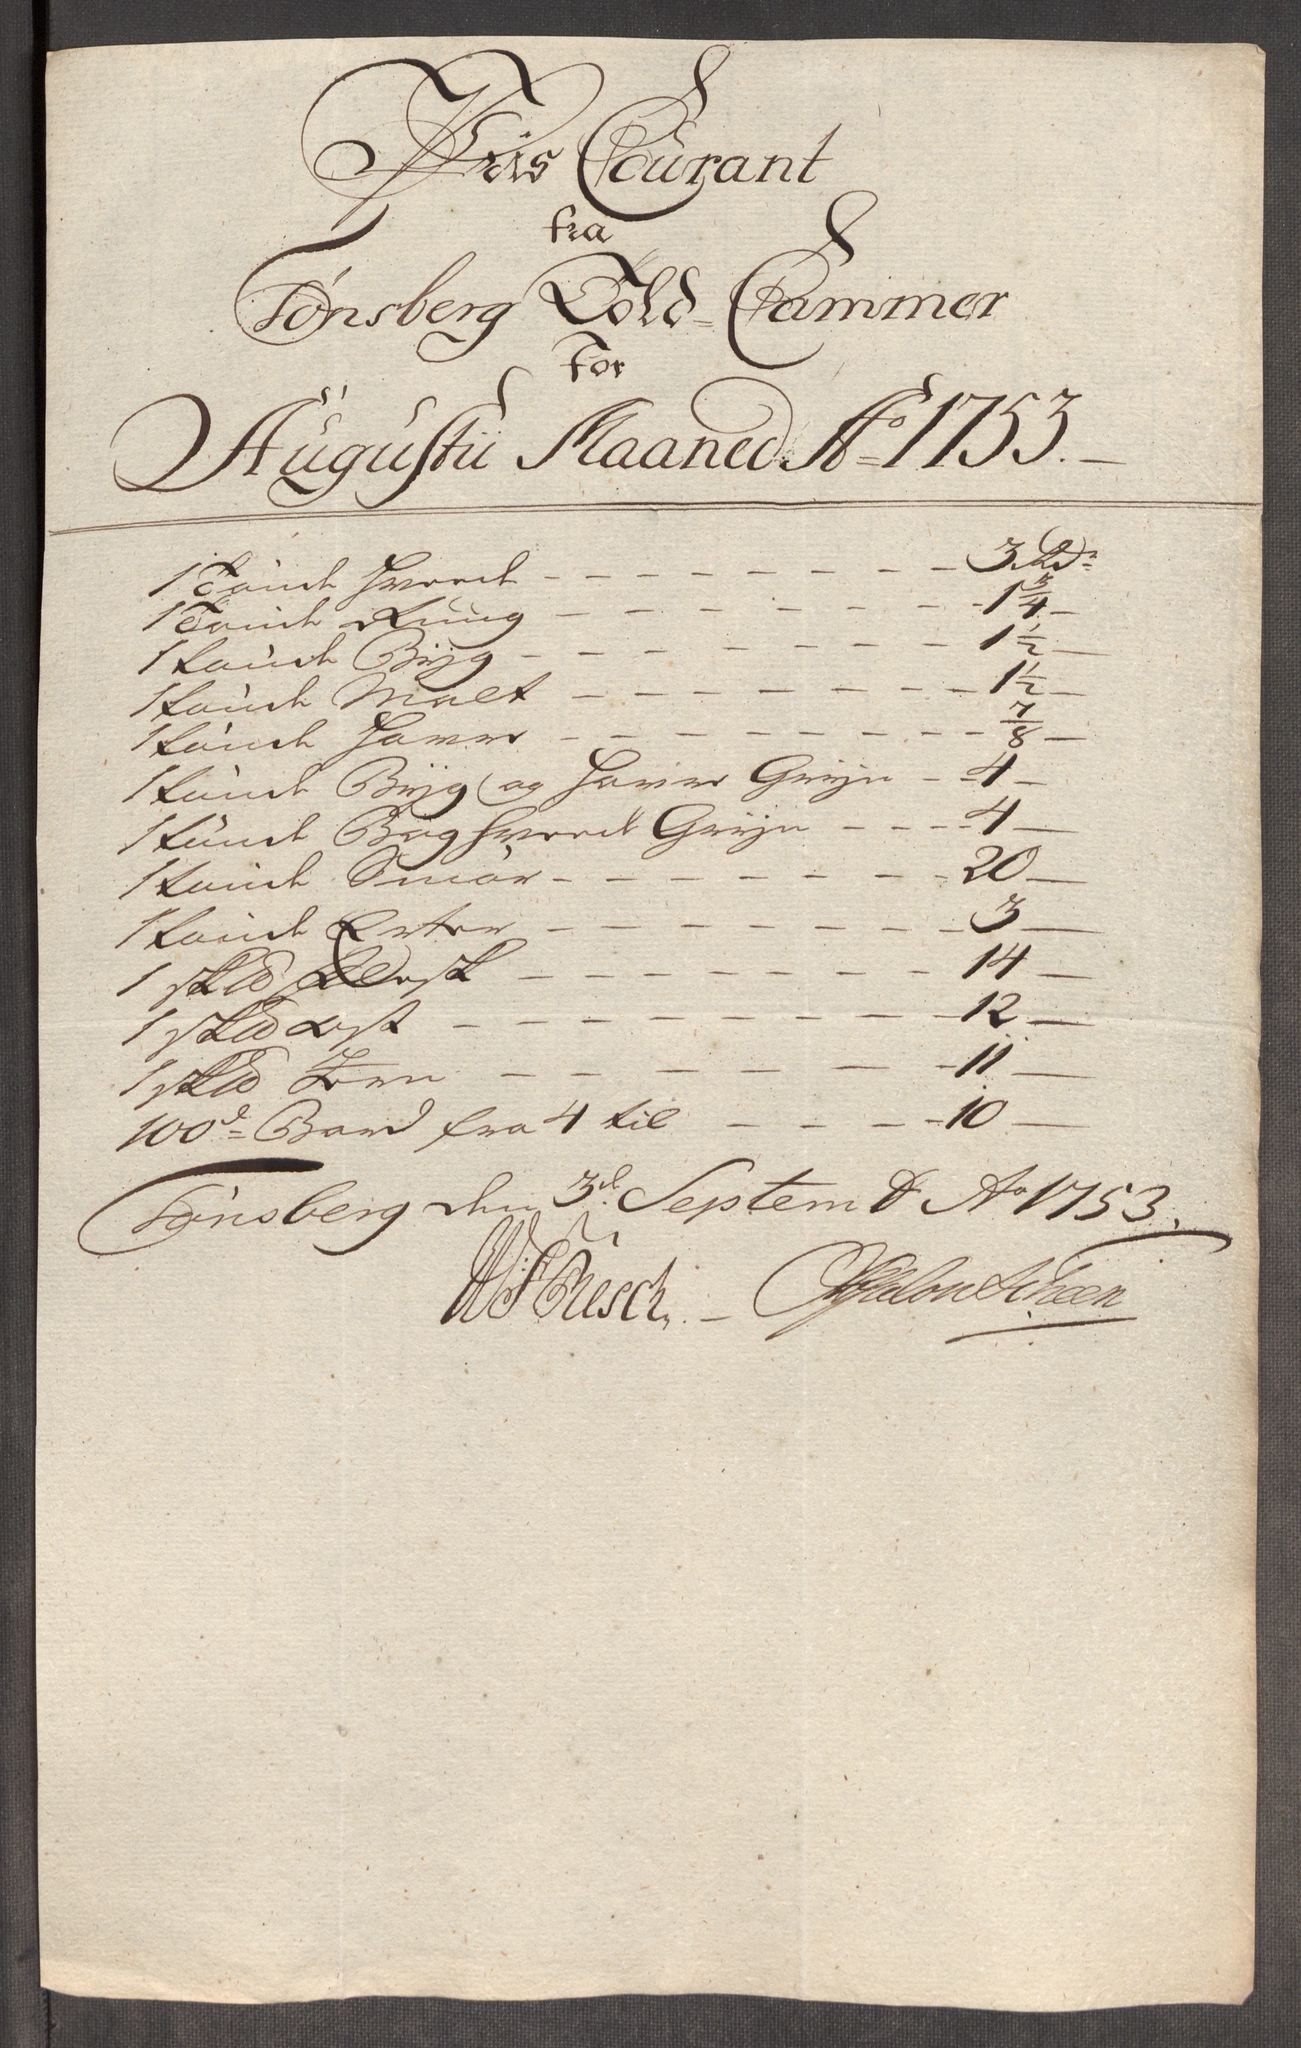 Priis Courant
fra
Tønsberg Told-Cammer
For
Augustii Maaned Ao 1753.
1 Tønde Hvede - - - 3 Rdr
1 Tønde Rüug - - - 1 3/4 -
1 tønde Byg - - - 1 1/2 -
1 tønde Malt - - - 1 1/2 -
1 tønde Haver - - - 7/8 -
1 tønde Byg og Haver Gryn - - 4 -
1 tønde Boghvede Gryn - - - 4 -
1 tønde Smør - - - 20 -
1 tønde Erter - - - 3 -
1 sk℔ Flesk - - - 14 -
1 sk℔ Ost - - - 12 -
1 sk℔ Jern - - - 11 -
100d Bord fra 4 til - - - 10 -
Tønsberg den 3d. Septembr Ao 1753.